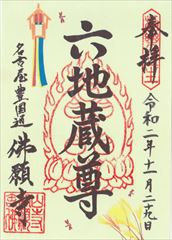 奉拝
令和二年十一月二十九日
六地蔵尊
名古屋豊国通
佛願寺